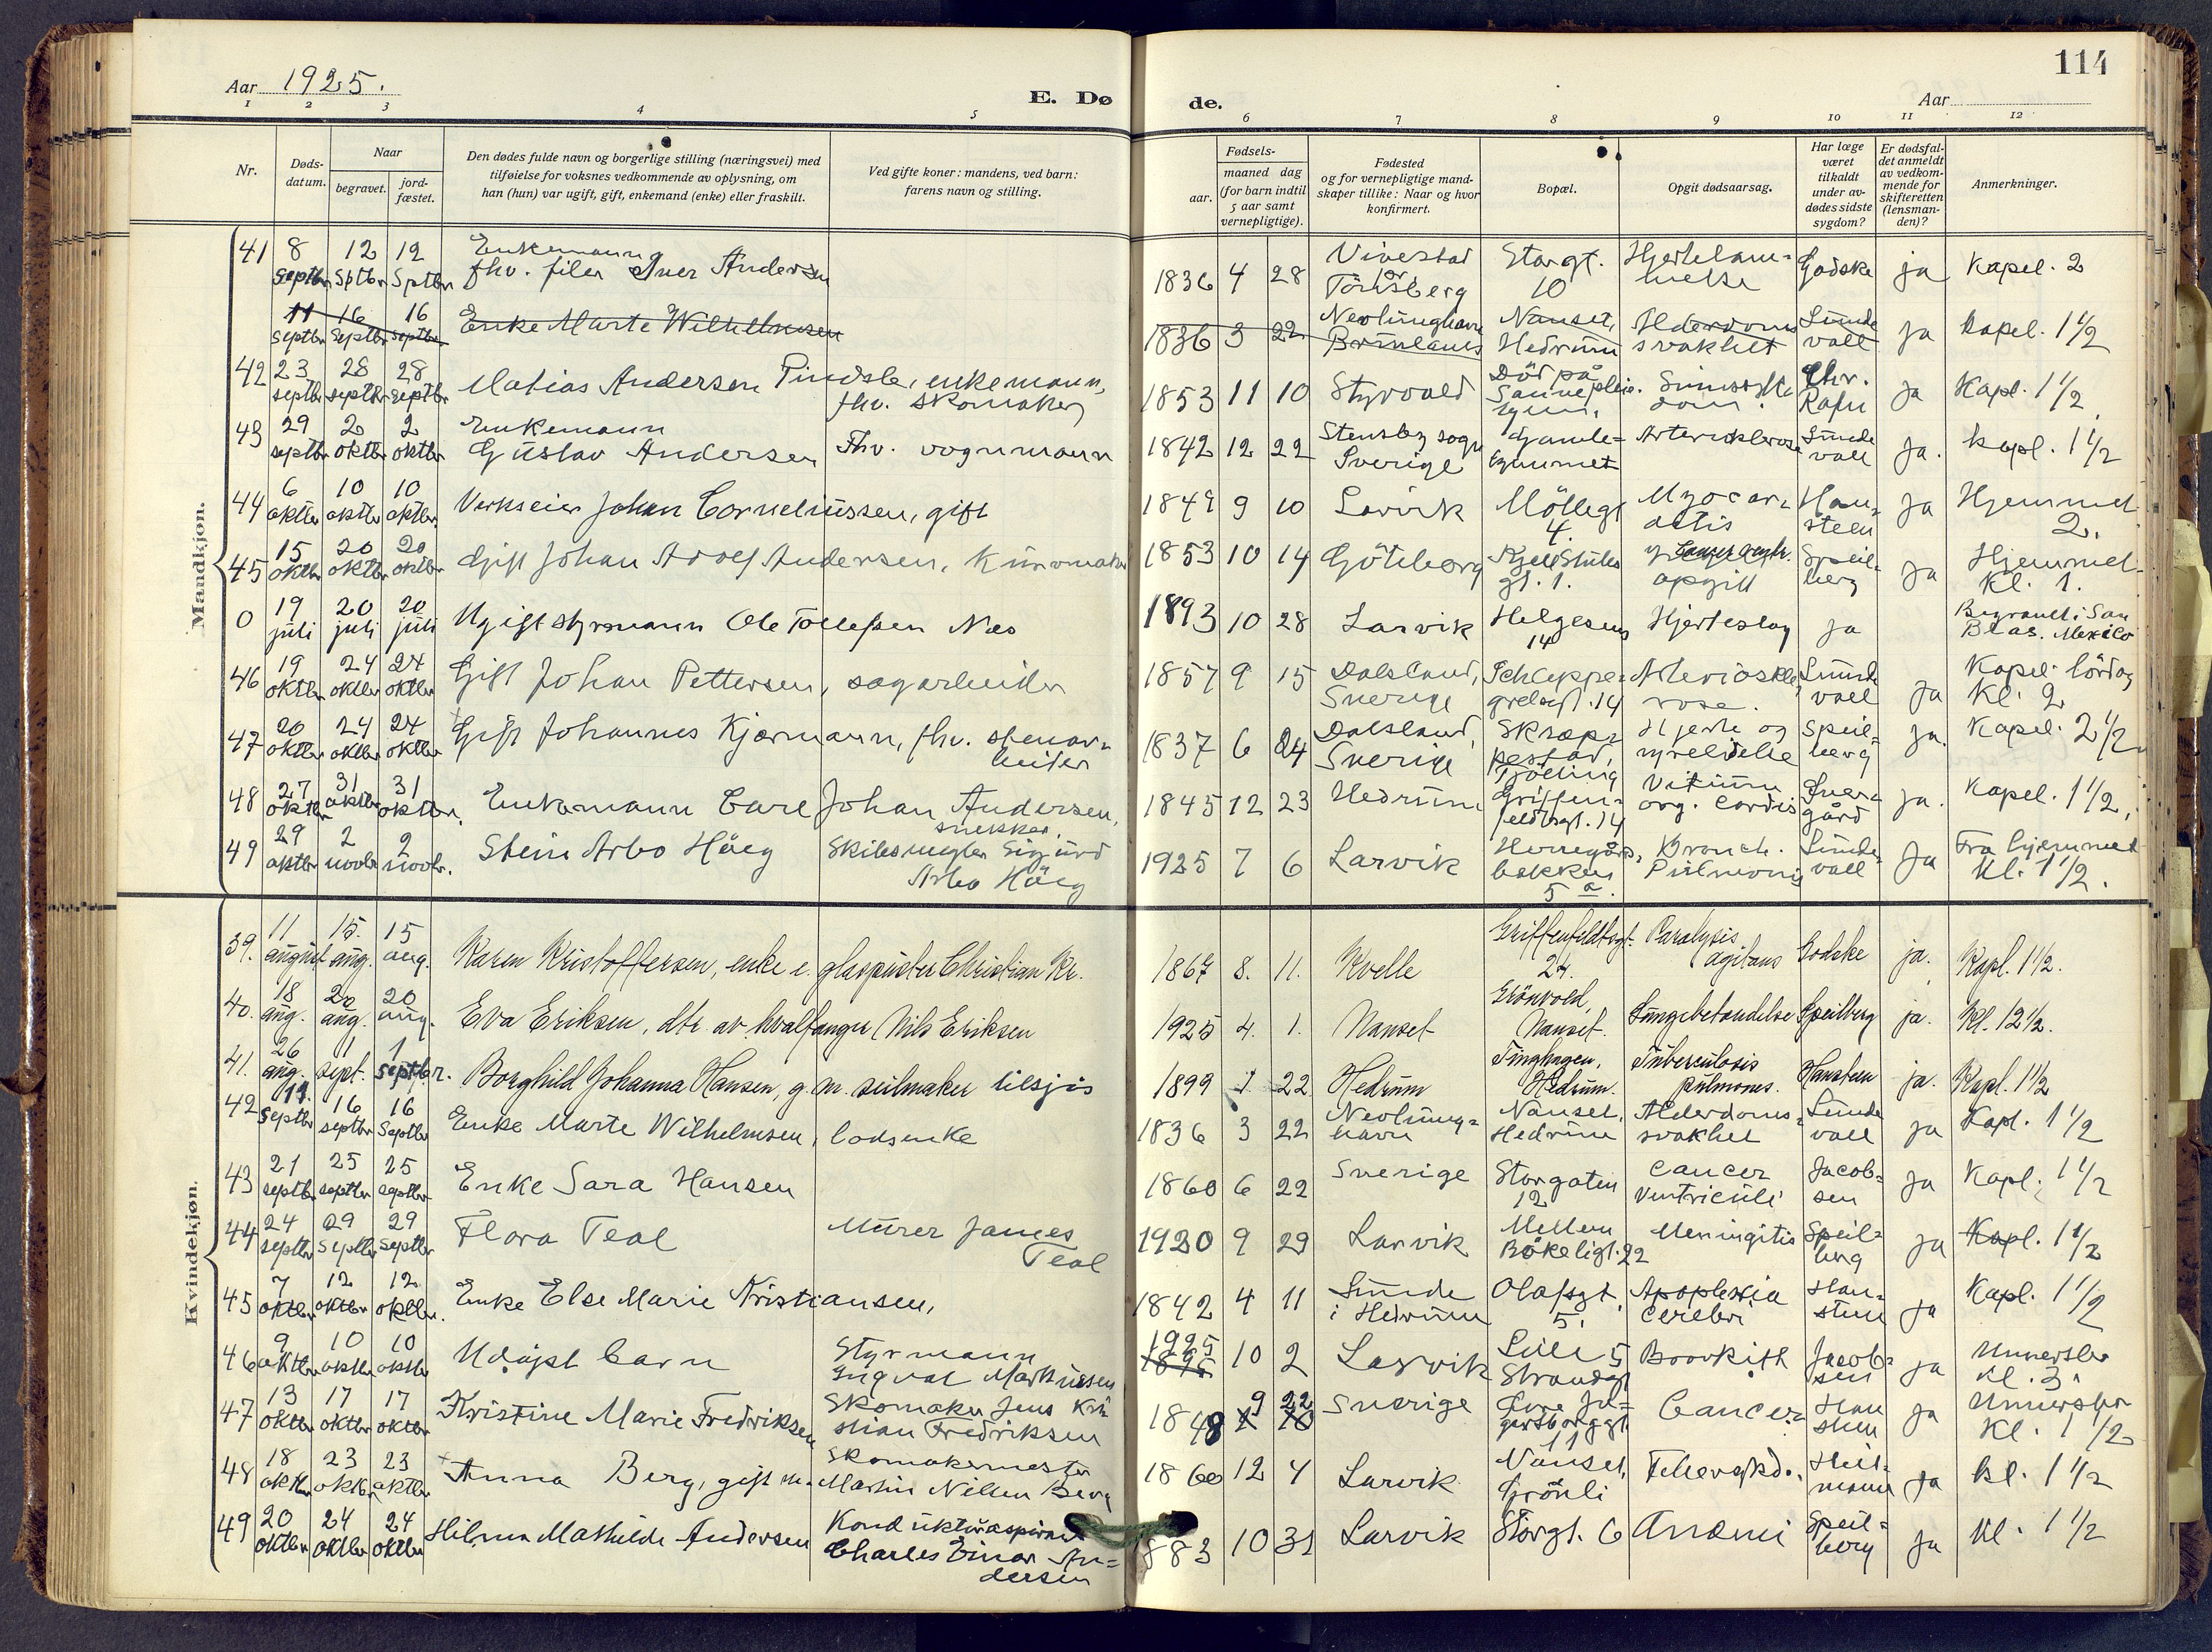 Aar 1925.
E. Dø
de.
Aar
114
1 2 3 4 5 6 7 8 9 10 11 12
Nr.
Døds-
datum.
Naar
begravet.
jord-
fæstet.
Den dødes fulde navn og borgerlige stilling (næringsvei) med
tilføielse for voksnes vedkommende av oplysning, om
han (hun) var ugift, gift, enkemand (enke) eller fraskilt.
Ved gifte koner: mandens, ved barn:
farens navn og stilling.
Fødsels-
aar.
maaned dag
(for barn indtil
5 aar samt
vernepligtige).
Fødested
og for vernepligtige mand-
skaper tillike: Naar og hvor
konfirmert.
Bopæl.
Opgit dødsaarsag.
Har læge
været
tilkaldt
under av-
dødes sidste
sygdom?
Er dødsfal-
det anmeldt
av vedkom-
mende for
skifteretten
(lensman-
den)?
Anmerkninger.
Mandkjøn.
41 8 Septbr 12 Sptbr 12 Sptbr Enkemann
fhv. filer Iver Andersen 1836 4 28 Vivestad Tönsberg Storgt. 10 Hjertelam-melse Godske ja Kapel. 2
11 septbr 16 septbr 16 septbr Enke Marte Wilhelmsen 1836 3 22 Nevlunghavn Brunlanes Nanset, Hedrum Alderdoms svakhet Sunde vall ja Kapel. 1 1/2
42 23 septbr 28 septbr 28 septbr Matias Andersen Pindsle, enkemann,
fhv. skomaker 1853 11 10 Styrvold Död på Chr. Rafn ja Kapl. 1 1/2
43 29 septbr 2 oktbr 2 oktbr Enkemann
Gustav Andersen Fhv. vognmann 1842 12 22 Stensby sogn Sverige Gamle-hjemmet Arteriosklerose Sunde vall ja. Kapl. 1 1/2
44 6 oktbr 10 oktbr 10 oktbr Verkseier Johan Corneliussen, gift 1849 9 10 Larvik Möllegt 4. Myocar-ditis Han-steen ja Hjemmet 2.
45 15 oktbr 20 oktbr 20 oktbr Gift Johan Adolf Andersen, Kurvmaker 1853 10 14 Göteborg gt. 1. opgitt Speil-berg ja Hjemmet Kl. 1.
0 19 juli 20 juli 20 juli Ugift styrmann Ole Tollefsen Næs 1893 10 28 Larvik Helgesens 14 Hjerteslag ja Begravet i San Blas. Mexico
46 19 oktbr 24 oktbr 24 oktbr Gift Johan Pettersen, sagarbeider 1857 9 15 Dalsland, Sverige Schleppe-grelsgt. 14 Arterioskle-rose. Sunde vall ja Kapel. lördag Kl. 2
47 20 oktbr 24 oktbr 24 oktbr Gift Johannes Kjærmann, fhv. stenar-
beider 1837 6 24 Dalsland, Sverige Skræp-pestad, Tjölling Hjerte og nyrelidelse Speil-berg ja. Kapel. 2 1/2
48 27 oktbr 31 oktbr 31 oktbr. Enkemann Carl Johan Andersen,
snekker. 1845 12 23 Hedrum Griffen-feldtsgt. 14 Vitium org. Cordis gård ja. Kapel. 1 1/2,
49 29 oktbr 2 novbr 2 novbr. Stein Arbo Höeg Skibsmegler Sigurd
Arbo Höeg 1925 7 6 Larvik Herregårds-bakken 5 a. Bronch. Pulmonis Sunde-vall ja Fra hjemmet Kl. 1 1/2.
Kvindekjøn.
39. 11 august 15. aug. 15 aug. Karen Kristoffersen, enke e. glaspuster Christian Kr. 1867 8. 11. Kvelle Griffenfeldtsgt. 24. Paralysis agitans Godske ja. Kapl. 1 1/2.
40. 18 aug. 20 aug. 20 aug. Eva Eriksen, dtr. av hvalfanger Nils Eriksen 1925 4. 1. Nanset Grönvold, Nanset. Lungebetendelse Speilberg ja. Kl. 12 1/2.
41. 26 aug. 1 sept. 1 septbr. Borghild Johanna Hansen, g. m. seilmaker tilsjis 1899 1. 22 Hedrum Tinghagen, Hedrum. Tuberculosis pulmones. Hansteen ja. Kapl. 1 1/2
42 11. septbr 16 septbr 16 Septbr Enke Marte Wilhelmsen, losenke 1836 3 22 Nevlung-havn Nanset, Hedrum Alderdoms-svakhet Sunde vall ja Kapl. 1 1/2
43 21 septbr 25 septbr 25 septbr Enke Sara Hansen 1860 6 22 Sverige Storgaten 12 Cancer Ventriculi Jacob-sen ja Kapl. 1 1/2
44 24 septbr 29 septbr 29 septbr Flora Teal Murer James
Teal 1920 9 29 Larvik Mellem Bökeligt. 22 Meningitis Speil-berg ja Kapl. 1 1/2
45 7 oktbr 12 oktbr 12 oktbr. Enke Else Marie Kristiansen, 1842 4 11 Sunde i Hedrum Olafsgt. 5. Apoplexia Cerebri Han-steen ja Kapl. 1 1/2
46 9 oktbr 10 oktbr 10 oktbr Udöpt barn Styrmann
Ingvar Markussen 1925 10 2 Larvik Lille Strandgt 5 Jacob-sen ja Kl. 3.
47 13 oktbr 17 oktbr 17 oktbr Kristine Marie Fredriksen Skomaker Jens Kri
stian Fredriksen 1848 9 22 Sverige 11 Cancer Han steen ja Kl. 1 1/2
48 18 oktbr 23 oktbr 23 oktbr Anna Berg, gift m. skomakermester
Martin Nilsen Berg 1860 12 4 Larvik Nanset, Grönli ja kl. 1 1/2
49 20 oktbr 24 oktbr 24 oktbr Hilma Mathilde Andersen Konduktöraspirant
Charles Einar An-
dersen 1883 10 31 Larvik Storgt. 6 Anæmi Speil-berg ja Kl. 1 1/2